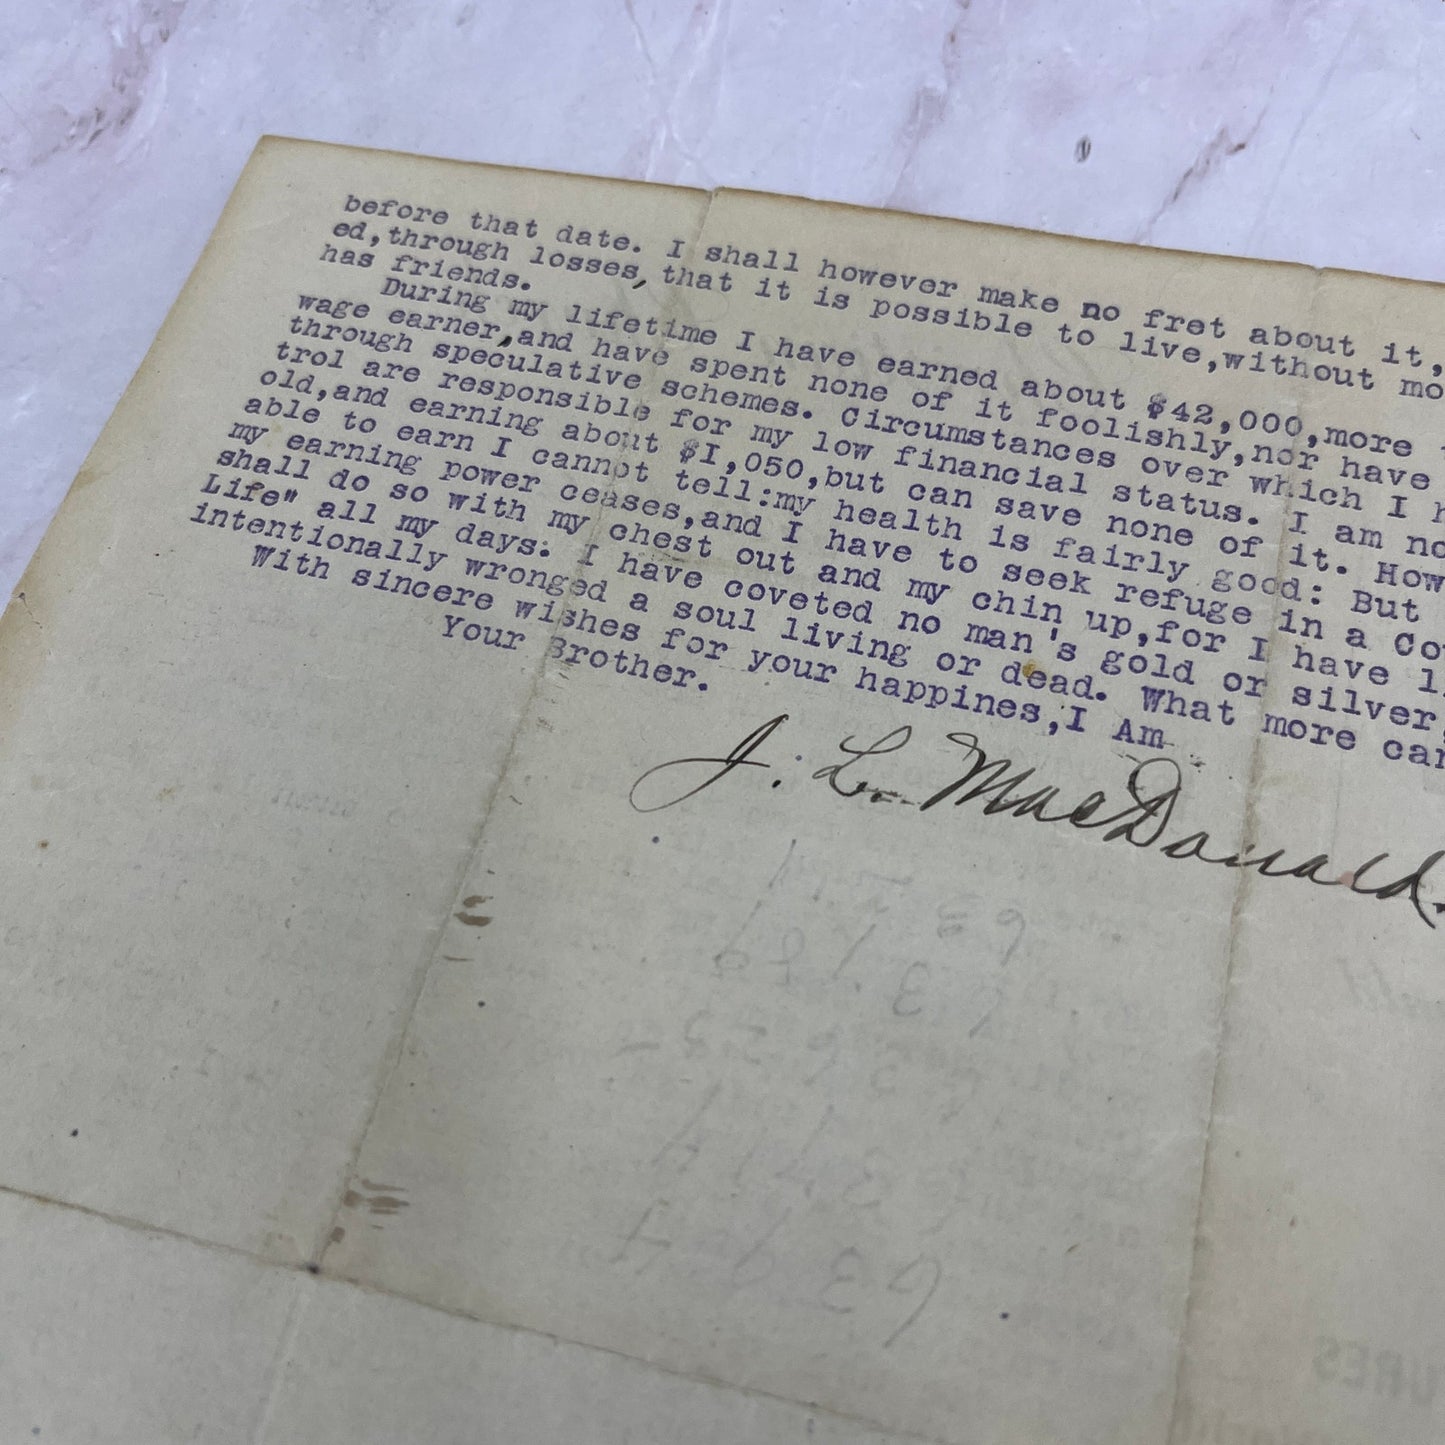 before that date. I shall however make no fret about it,
ed,through losses,that it is possible to live,without
has friends.
During my lifetime I have earned about $42,000,more
wage earner,and have spent none of it foolishly,nor have
through speculative schemes. Circumstances over which I
trol are responsible for my low financial status. I am
old,and earning about $1,050,but can save none of it.
able to earn I cannot tell:my health is fairly good: But
my earning power ceases,and I have to seek refuge in a
shall do so with my chest out and my chin up,for I have
Life" all my days: I have coveted no man's gold or silver,
intentionally wronged a soul living or dead. What more
With sincere wishes for your happines,I Am
Your Brother.
J. L. MacDonald.